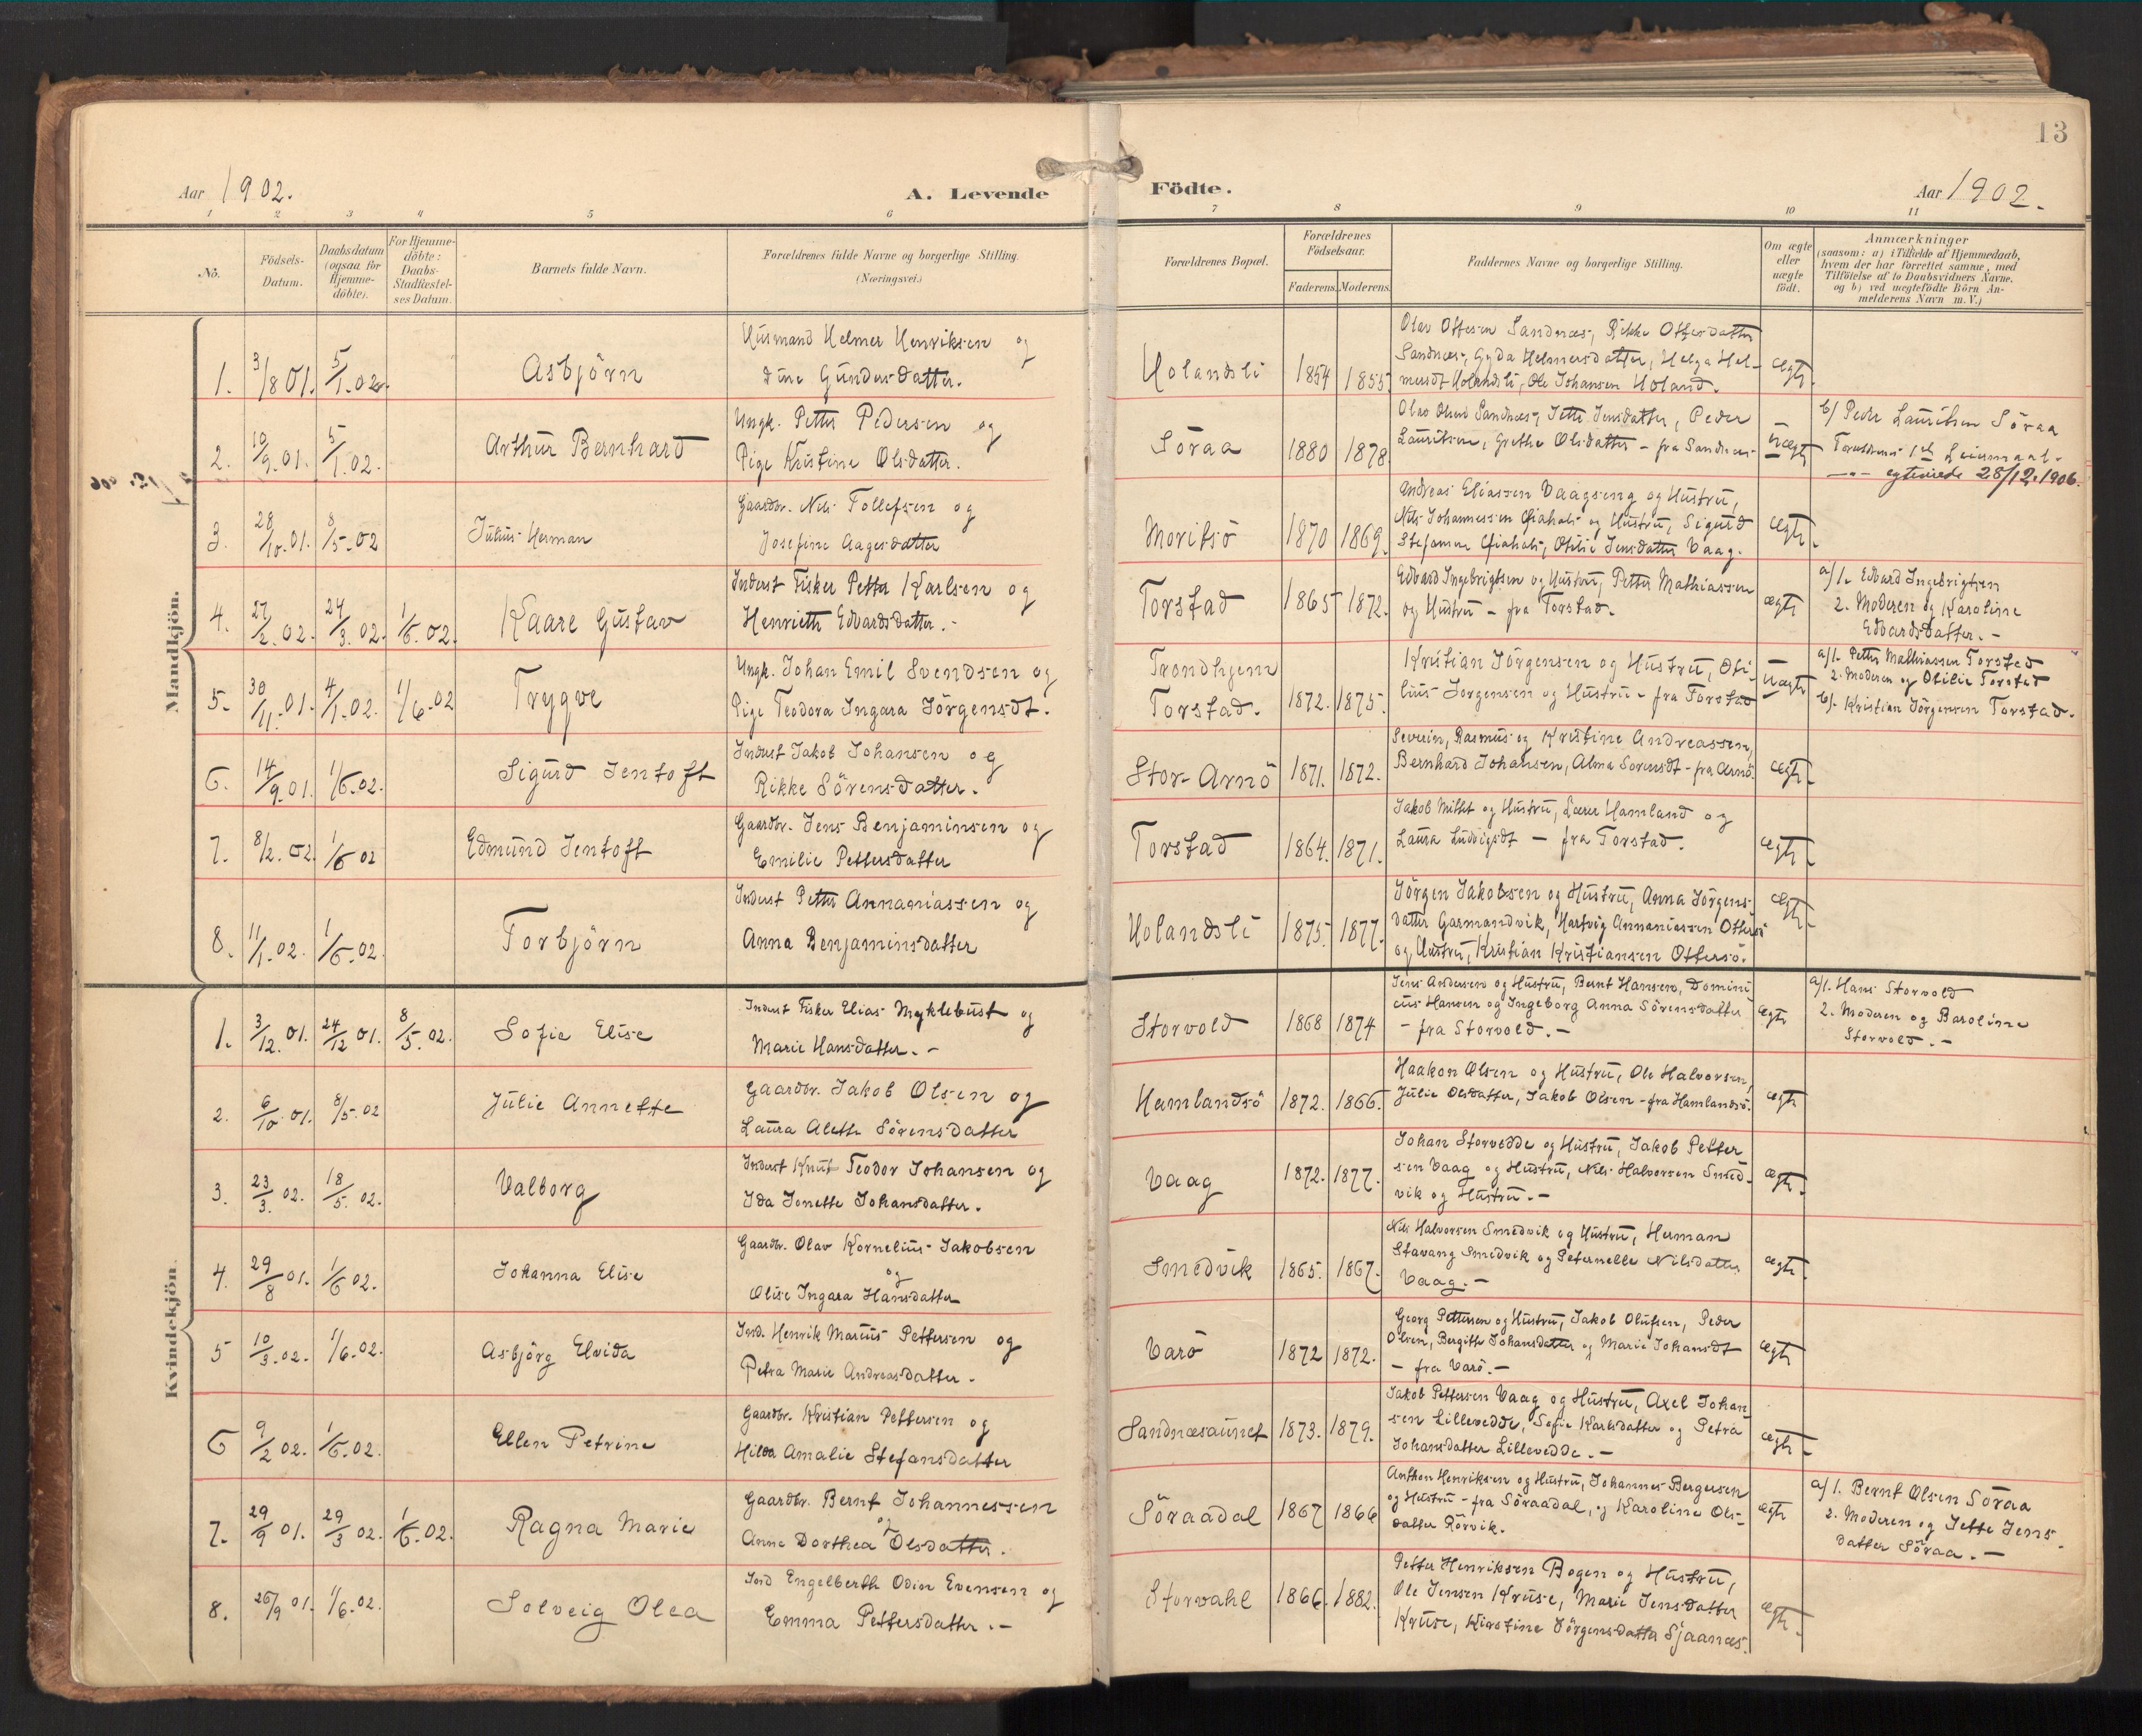 13
Aar 1902.
A. Levende
Födte.
Aar 1902.
1 2 3 4 5 6 7 8 9 10 11
No.
Födsels-
Datum.
Daabsdatum
(ogsaa for
Hjemme-
döbte).
For Hjemme-
döbte:
Daabs-
Stadfæstel-
ses Datum.
Barnets fulde Navn.
Forældrenes fulde Navne og borgerlige Stilling.
(Næringsvei.)
Forældrenes Bopæl.
Forældrenes
Födselsaar.
Faderens. Moderens.
Faddernes Navne og borgerlige Stilling.
Om ægte
eller
uægte
födt.
Anmærkninger
(saasom: a) i Tilfælde af Hjemmedaab,
hvem der har forrettet samme, med
Tilföielse af to Daabsvidners Navne.
og b) ved uægtefödte Börn An-
melderens Navn m. V.)
Mandkjön.
1. 3/8 01. 5/1. 02. Asbjörn
Husmand Helmer Henriksen og
Dine Gundersdatter.
Holandsli 1854 1855
Olav Ottesen Sandnæs, Rikke Ottesdatter
Sandnæs, Gyda Helmersdatter, Helga Hel-
mersdt Holandsli, Ole Johansen Holand.
ægte.
2. 10/9. 01. 5/1. 02. Arthur Bernhard
Ungk. Petter Pedersen og
Pige Kristine Olsdatter.
Söraa 1880 1878
Olav Olsen Sandnæs, Jette Jensdatter, Peder
Lauritsen, Grethe Olsdatter - fra Sandnæs
uægte
b/ Peder Lauritsen Söraa
Forældrenes 1ste Leiermaal.
—„— egteviede 28/12. 1906.
3. 28/10. 01. 8/5. 02 Julius Herman
Gaardbr. Nils Tollefsen og
Josefine Aagesdatter
Moriksö 1870 1869.
Andreas Eliassen Vaagseng og Hustru,
Nils Johannessen og Hustru, Sigurd
Stefansen Otilie Jensdatter Vaag.
ægte.
4. 27/2. 02. 24/3. 02. 1/6. 02. Kaare Gustav
Inderst Fisker Petter Karlsen og
Henriette Edvardsdatter. -
Torstad 1865 1872.
Edvard Ingebrigtsen og Hustru, Petter Mathiassen
og Hustru - fra Torstad.
ægte
a/ 1. Edvard Ingebrigtsen
2. Moderen og Karoline
Edvardsdatter. -
5. 30/11. 01. 4/1. 02. 1/6. 02 Trygve
Ungk. Johan Emil Svendsen og
Pige Teodora Ingara Jörgensdt.
Trondhjem
Torstad. 1872. 1875.
Kristian Jörgensen og Hustru, Oti-
lius Jorgensen og Hustru - fra Torstad
uægte
a/1. Petter Mathiassen Torstad
2. Moderen og Otilie Torstad
b/. Kristian Jörgensen Torstad.
6. 14/9. 01. 1/6. 02. Sigurd Jentoft
Inderst Jakob Johansen og
Rikke Sörensdatter.
Stor-Arnö 1871. 1872.
Severin, Rasmus og Kristine Andreassen,
Bernhard Johansen, Alma Sorensdt - fra Arnö.
ægte.
7. 8/2. 02. 1/6 02 Edmund Jentoft
Gaardbr. Jens Benjaminsen og
Emilie Pettersdatter
Torstad 1864. 1871.
Jakob Millet og Hustru, Lærer Hamland og
Laura Ludvigsdt - fra Torstad.
ægte.
8. 11/1. 02. 1/6. 02. Torbjörn
Inderst Petter Annaniassen og
Anna Benjaminsdatter
Holandsli 1875. 1877.
Jörgen Jakobsen og Hustru, Anna Jörgens-
datter Garmandvik, Hartvig Annaniassen Ottersö
og Hustru, Kristian Kristiansen Ottersö.
ægte.
Kvindekjön.
1. 3/12. 01. 24/12 01. 8/5. 02. Sofie Elise
Inderst Fisker Elias Myklebust og
Marie Hansdatter. -
Storvold 1868 1874
Jens Andersens og Hustru, Bernt Hansen, Domini-
cus Hansen og Ingeborg Anna Sörensdatter
- fra Storvold. -
ægte
a/1. Hans Storvold
2. Moderen og Baroline
Storvold. -
2. 6/10. 01. 8/5. 02 Julie Annette
Gaardbr. Jakob Olsen og
Laura Alette Sörensdatter
Hamlandsö 1872. 1866.
Haakon Olsen og Hustru, Ole Halvorsen,
Julie Olsdatter, Jakob Olsen - fra Hamlandsö.
ægte
3. 23/3. 02. 18/5. 02. Valborg
Inderst Knut Teodor Johansen og
Ida Jonette Johansdatter.
Vaag 1872. 1877.
Johan Storvedde og Hustru, Jakob Petter
sen Vaag og Hustru, Nils Halvorsen Smed-
vik og Hustru. -
ægte.
4. 29/8 01. 1/6 02. Johanna Elise
Gaardbr. Olav Kornelius Jakobsen
og
Olise Ingara Hansdatter
Smedvik 1865. 1867.
Nils Halvorsen Smedvik og Hustru, Herman
Stavang Smedvik og Peternelle Nilsdatter
Vaag. -
ægte.
5 10/3. 02. 1/6. 02. Asbjörg Elvida
Ind. Henrik Marius Pettersen og
Petra Marie Andreasdatter.
Varö 1872 1872.
Georg Pettersen og Hustru, Jakob Olufsen, Peder
Olsen, Bergitte Johansdatter og Marie Johansdt
- fra Varö. -
ægte
6 9/2 02. 1/6. 02. Ellen Petrine
Gaardbr. Kristian Pettersen og
Hilda Amalie Stefansdatter
Sandnæsaunet 1873. 1879.
Jakob Pettersen Vaag og Hustru, Axel Johan-
sen Lillevedde, Sofie Karlsdatter og Petra
Johansdatter Lillevedde. -
ægte
7. 29/9 01. 29/3 02. 1/6. 02. Ragna Marie
Gaardbr. Bernt Johannessen
og
Anna Dorthea Olsdatter.
Söraadal 1867 1866
Anthon Henriksen og Hustru, Johannes Bergersen
og Hustru - fra Söraadal, og Karoline Ols-
datter Rörvik.
ægte
a/ 1. Bernt Olsen Söraa
2. Moderen og Jette Jens-
datter Söraa. -
8. 26/9 01. 1/6. 02. Solveig Olea
Ind Engelberth Odin Evensen og
Emma Pettersdatter. -
Storvahl 1866. 1882.
Petter Henriksen Bogen og Hustru,
Ole Jensen Kruse, Marie Jensdatter
Kruse, Kirstine Jörgensdatter Sjaanæs.
ægte.